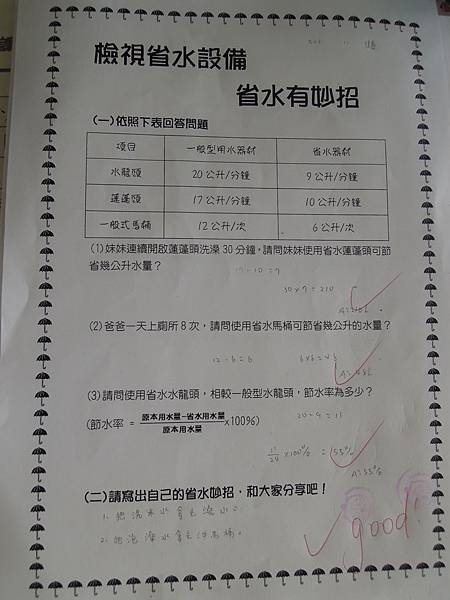 檢視省水設備
省水有妙招
(一)依照下表回答問題
項目 一般型用水器材 省水器材
水龍頭 20公升/分鐘 9公升/分鐘
蓮蓬頭 17公升/分鐘 10公升/分鐘
一般式馬桶 12公升/次 6公升/次
(1)妹妹連續開啟蓮蓬頭洗澡30分鐘,請問妹妹使用省水蓮蓬頭可節
省幾公升水量?
17-10=7
30×7=210
(2)爸爸一天上廁所8次,請問使用省水馬桶可節省幾公升的水量?
12-6=6
(3)請問使用省水水龍頭,相較一般型水龍頭,節水率為多少?
(節水率 = 原本用水量-省水用水量
原本用水量 x100%)
20-9=11
11/20 ×100% =55%
A:55%
(二)請寫出自己的省水妙招,和大家分享吧!
1.把洗米水拿去澆水。
good!